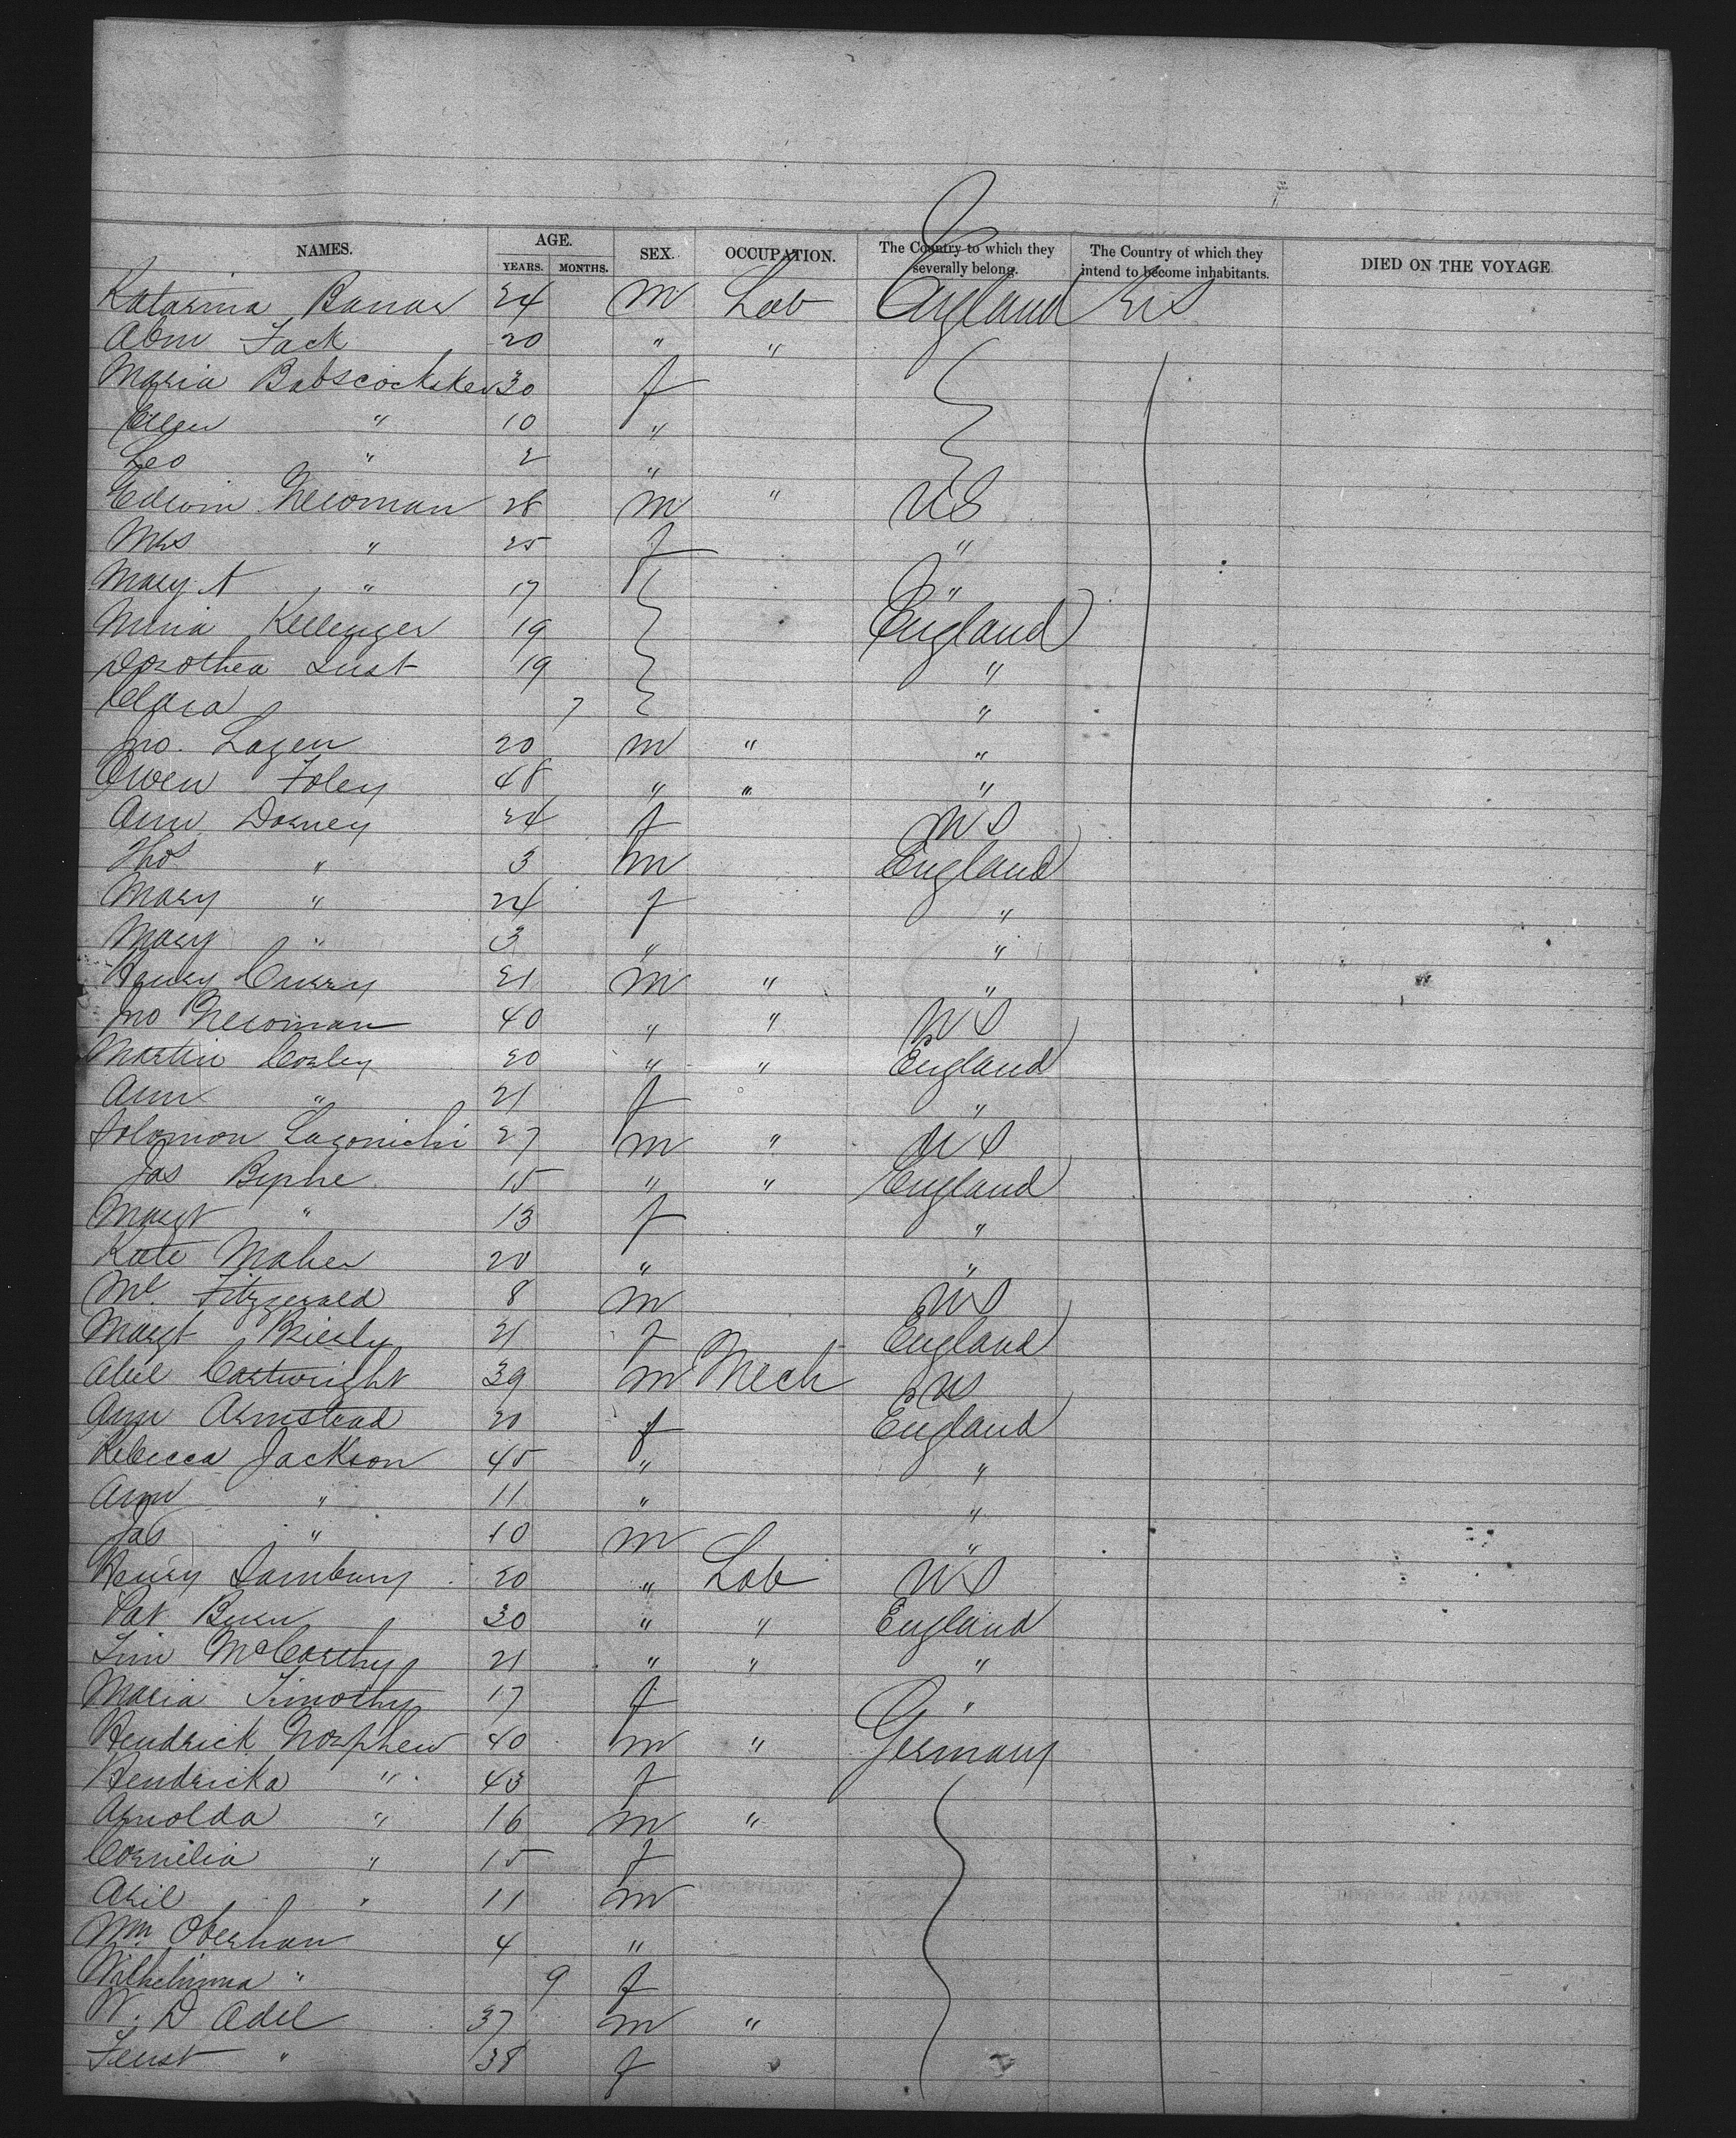 NAMES. AGE. YEARS. MONTHS. SEX. OCCUPATION. The Country to which they severally belong. The Country of which they intend to become inhabitants. DIED ON THE VOYAGE
Katarina Banar 24 m Lab England US
Abm Jack 20 " "
Maria Babscochsker 30 f
Ellen " 10 "
Leo " 2 "
Edwin Newman 28 m " US
Mrs " 25 f "
Mary A " 17 "
Minia Kellenger 19 England
Dorothea Lust 19 "
Clara 7 "
Jno. Lagen 20 m " "
Owen Foley 48 " " "
Ann Dorney 24 f US
Thos " 3 m England
Mary " 24 f "
Mary " 3 " "
Henry Curry 21 m " "
Jno Newman 40 " " US
Martin Corley 20 " " England
Ann " 21 f "
Solomon Lazonichi 27 m " US
Jas Byphe 15 " " England
Margt " 13 f "
Kate Maher 20 " "
Ml. Fitzgerald 8 m US
Margt Brierly 21 f England
Abel Cartwright 39 m Mech US
Ann Armstead 20 f England
Rebecca Jackson 45 " "
Ann " 11 " "
Jas " 10 m "
Henry Dambury 20 " Lab US
Pat Burn 30 " " England
Tim McCarthy 21 " " "
Maria Timothy 17 f "
Hendrick Norphew 40 m " Germany
Hendricka " 43 f
Arnolda " 16 m "
Cornilia " 15 f
Aril " 11 m
Wm. Oberhan 4 "
Wilhelmina " 9 f
W. D Adel 37 m "
Feust " 38 f